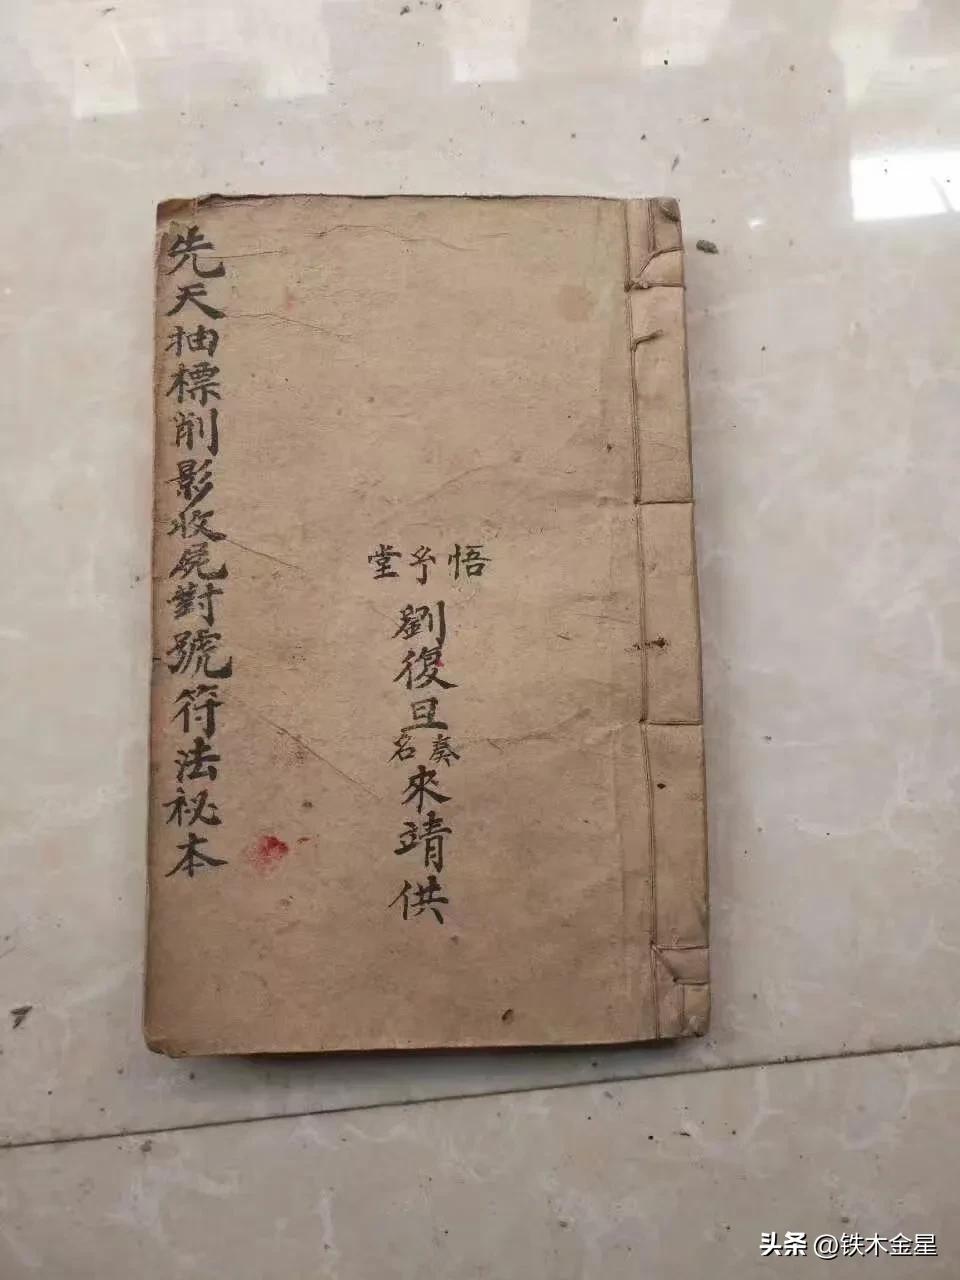 悟堂
劉復旦奏名來靖供
先天抽標削影收屍對號符法祕本
头条 @铁木金星